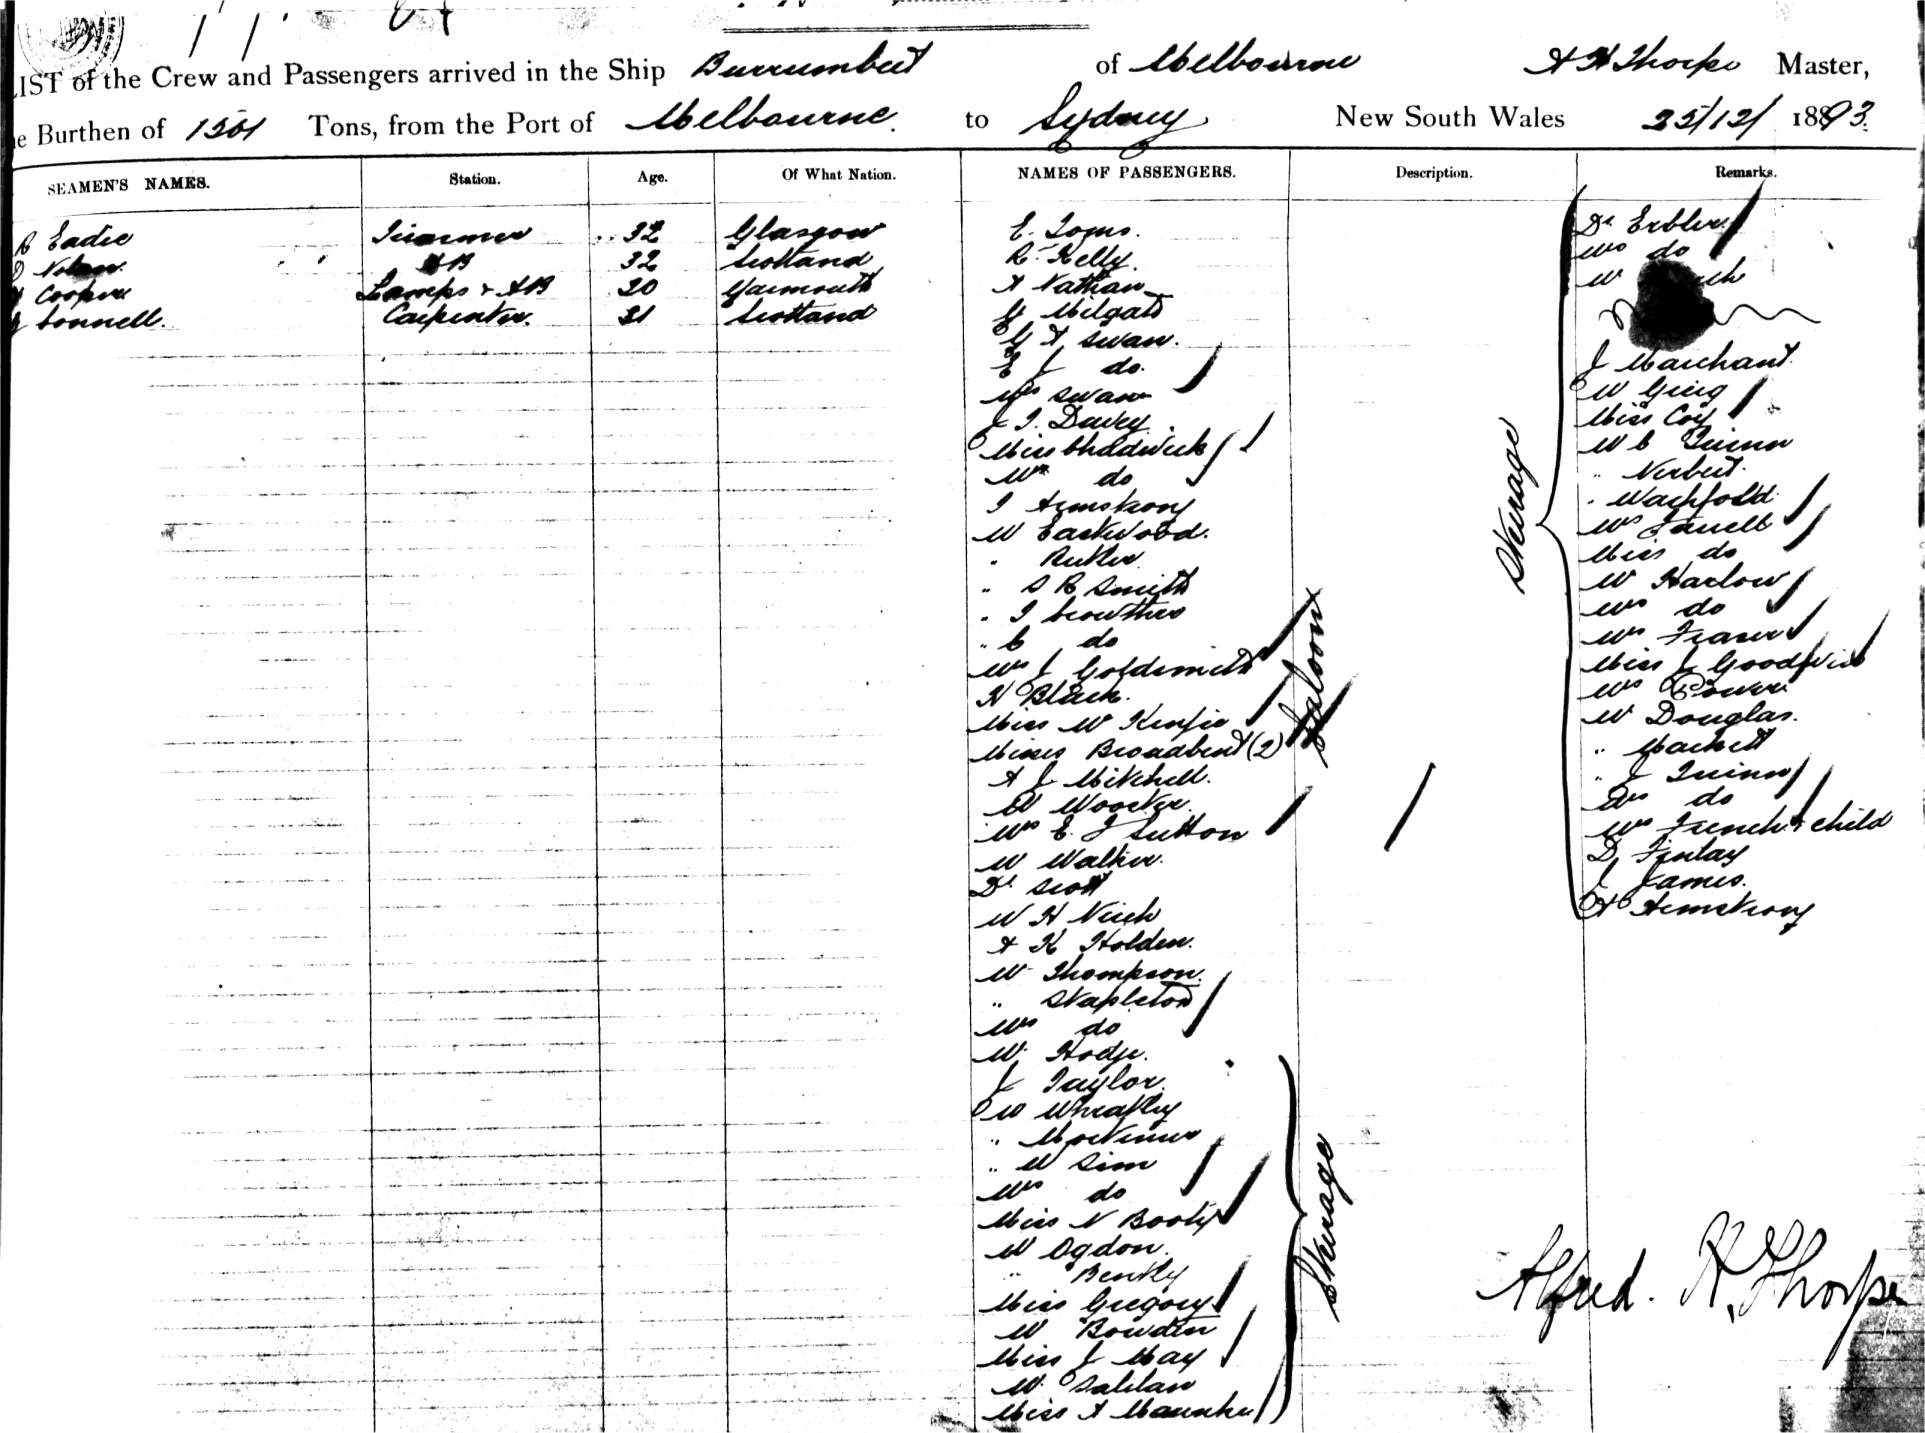 LIST of the Crew and Passengers arrived in the Ship Burrumbeet of Melbourne A H Thorpe Master,
Burthen of 1501 Tons, from the Port of Melbourne to Sydney New South Wales 25/12/ 1893.
SEAMEN'S NAMES. Station. Age. Of What Nation. NAMES OF PASSENGERS. Description. Remarks.
Eadie Trimmer 32 Glasgow
Nolan AB 32 Scotland
Cooper Lamps + AB 20 Yarmouth
Connell. Carpenter. 31 Scotland
E. Toms.
R. Kelly.
A Nathan
G Milgate
G A Swan.
E J do.
Mrs Swan
J T. Davey.
Miss Chadwick
Mr do
J Armstrong
Mr Eastwood.
" Butler
" S R Smith
" J Crowther
" C do
Mrs J Goldsmith
H Black.
Miss M Kenzie
Misses Broadbent (2)
A J Mitchell.
Mrs E. J Sutton
Mr Walker.
Dr Scott
W H
A K Holden.
Mr Thompson.
" Stapleton
Mrs do
Saloon
Mr Hodge.
J Taylor.
W Wheatley
" Mortimer
" W Sim
Mrs do
Miss N Booty
Mr Ogdon.
" Bently
Miss Gregory
Mr Bowden
Miss J May
Mr
Miss A
Steerage
Dr Erbler
Mrs do
Mr
J Marchant.
Mr
Miss Coy
Mr C Quinn
" Norbert
"
Mrs Farrell
Miss do
Mr Harlow
Mrs do
Mrs Fraser
Miss J Goodwin
Mrs Power
Mr Douglas.
" Mackett
" J Quinn
Mrs do
Mrs French + child
D Finlay
J James.
A Armstrong
Steerage
Alfred. H. Thorpe